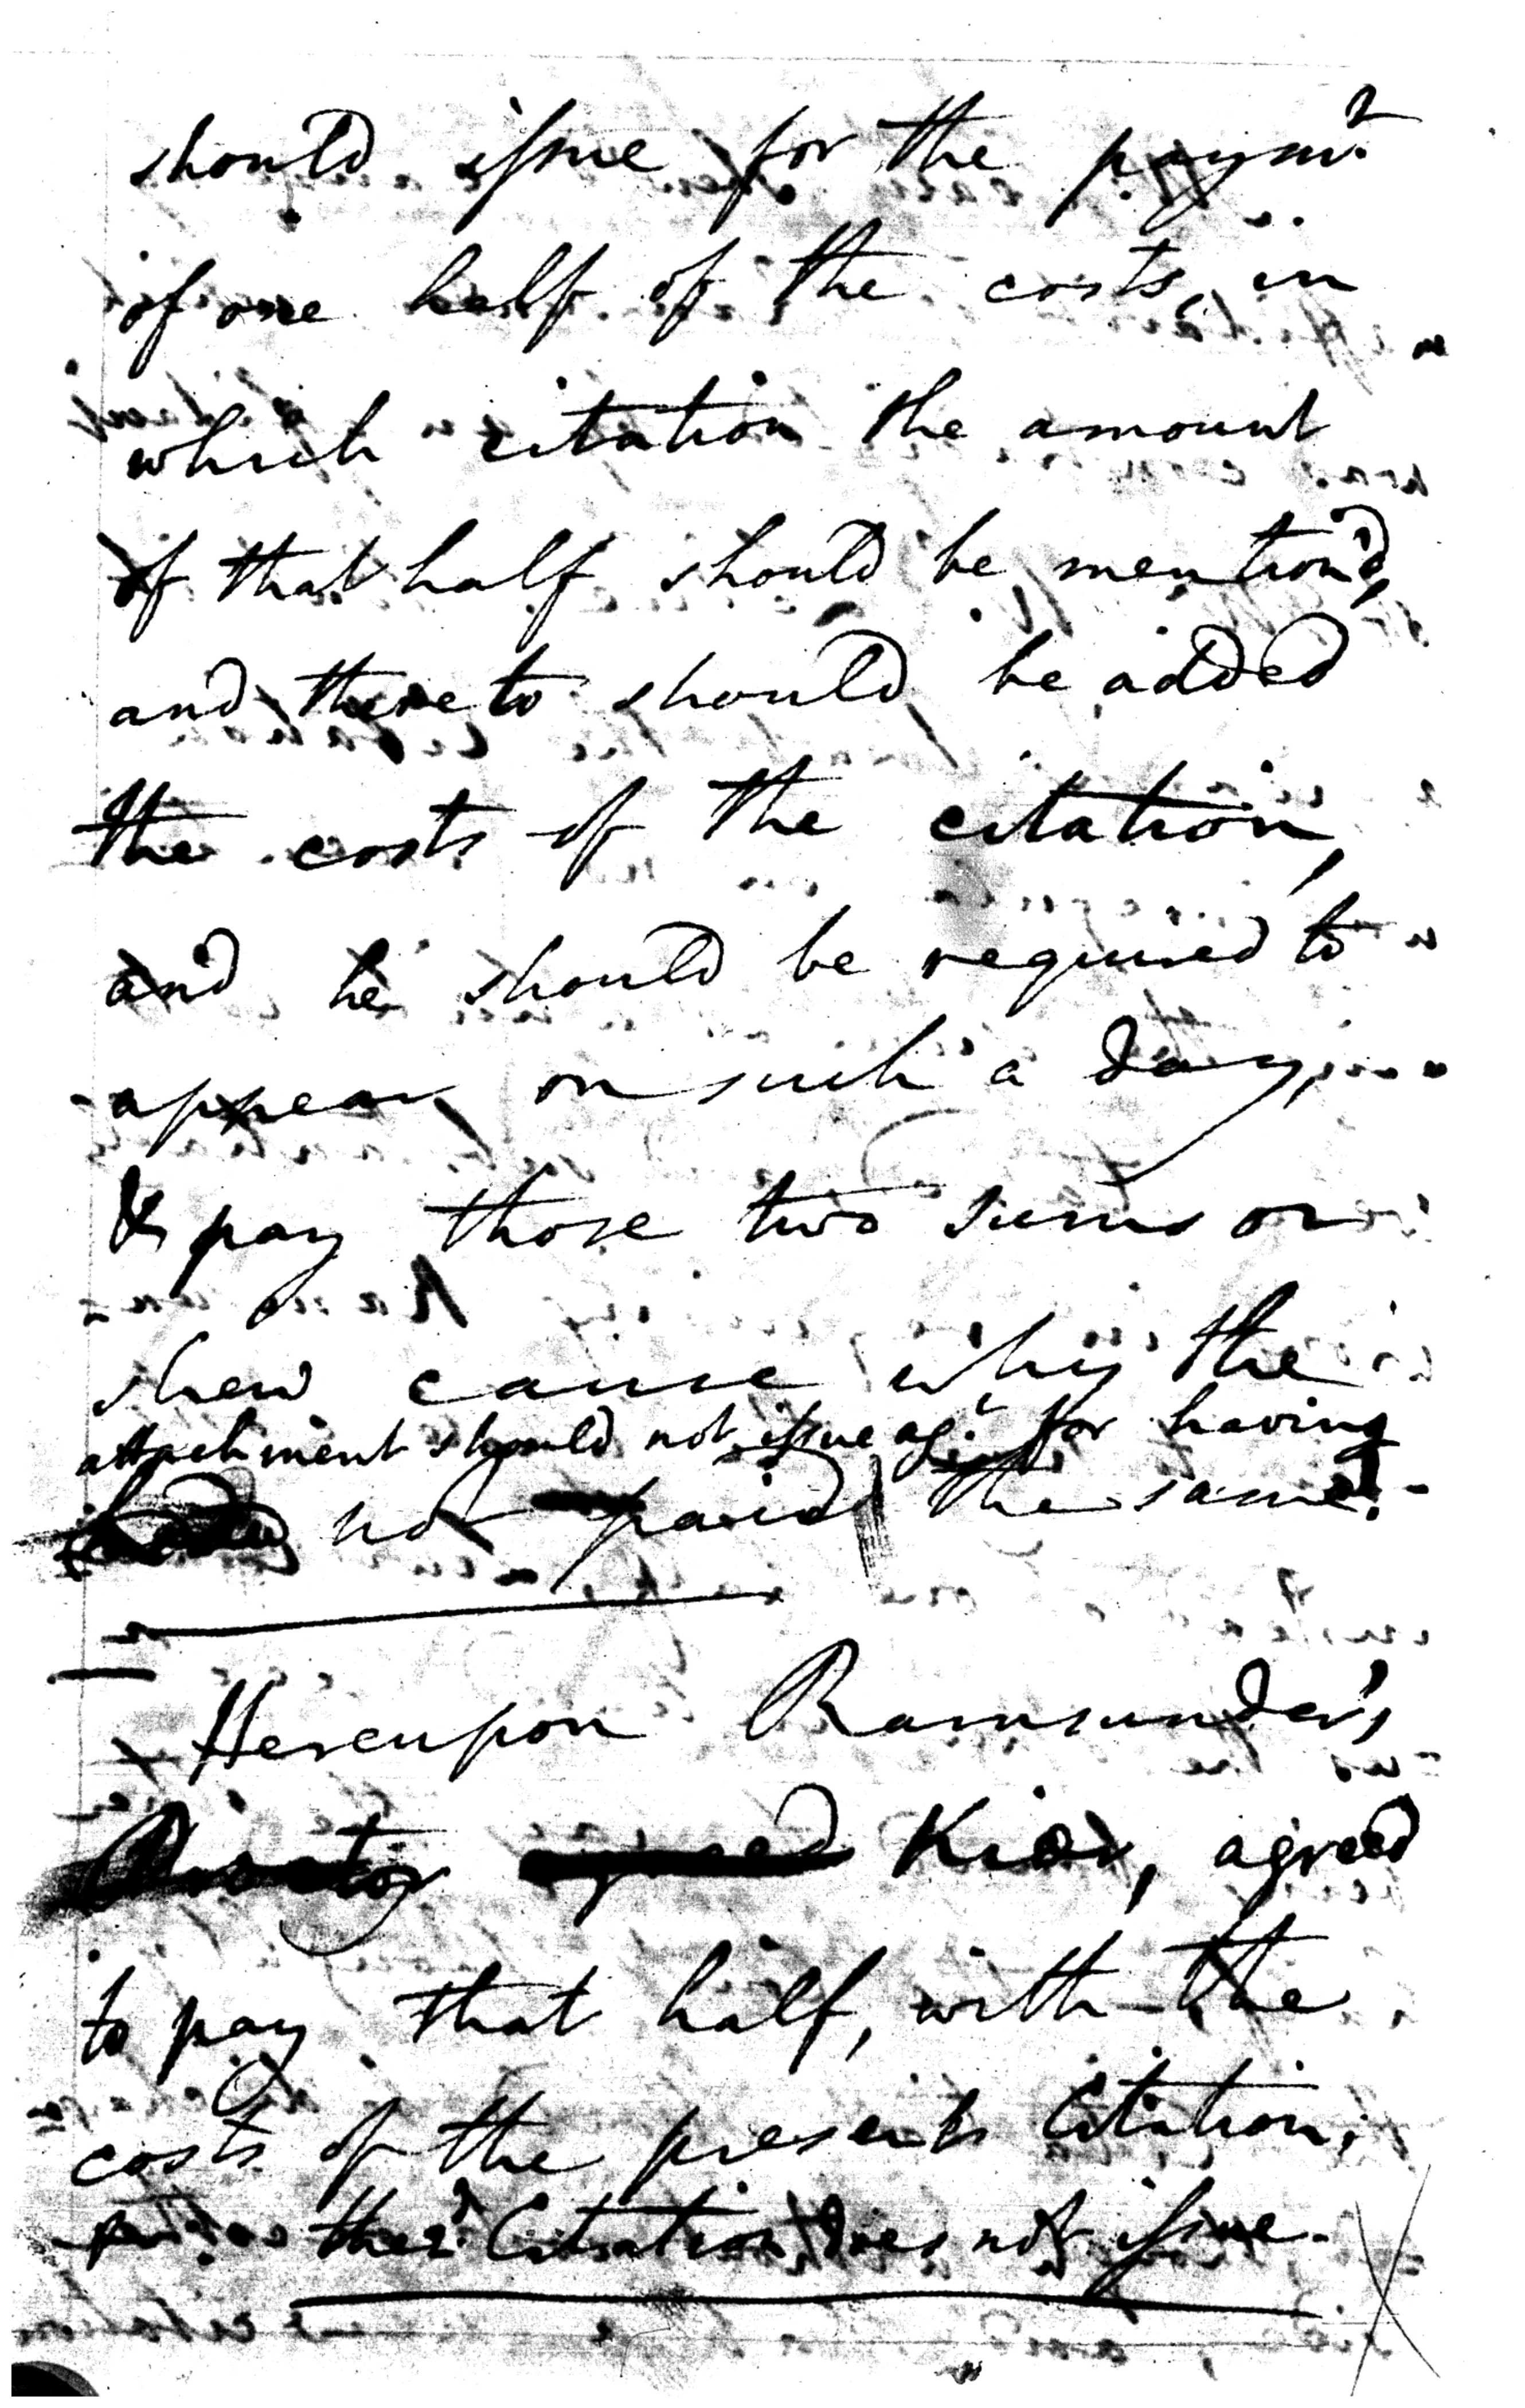 should issue for the paymt.
of one half of the costs, in
which citation the amount
of that half should be mention'd,
and thereto should be added
the costs of the citation,
and he should be required to
appear on such a day,
& pay those two sums or
shew cause why the
attachment should not issue agt. for having
not paid the same.
Hereupon Ramsunder's
agreed
to pay that half, with the
costs of the present Citation;
the 2d Citation does not issue.